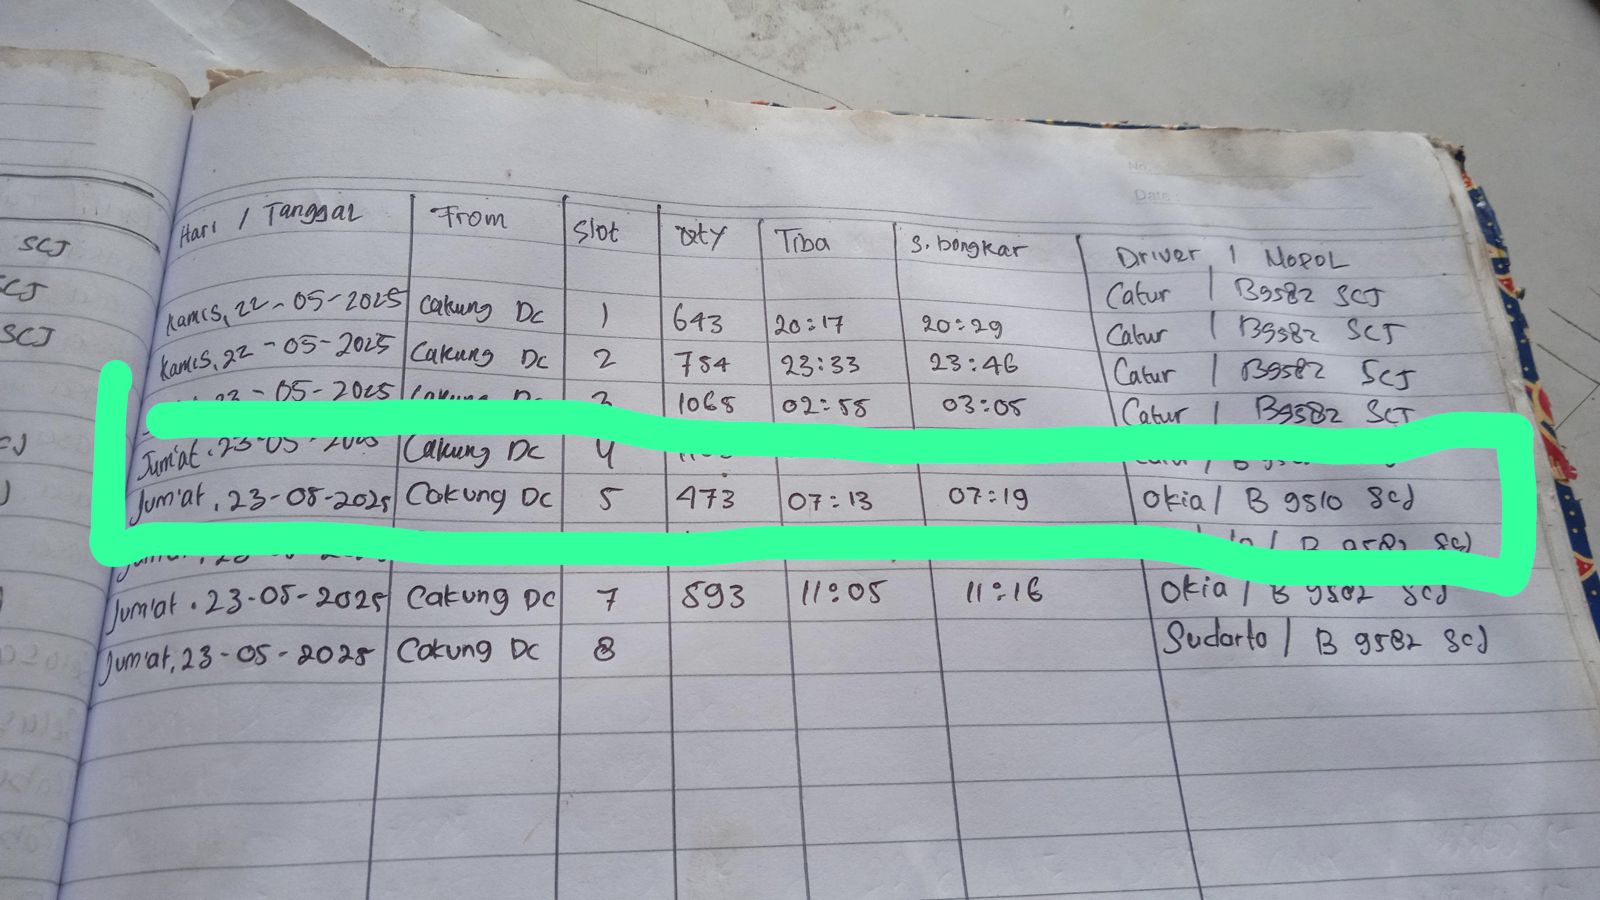 SCJ
SCJ
SCJ
No.
Date :
Hari / Tanggal From Slot Qty Tiba S. bongkar Driver / Nopol
Kamis, 22-05-2025 Cakung Dc 1 643 20:17 20:29 Catur / B9582 SCJ
Kamis, 22-05-2025 Cakung Dc 2 784 23:33 23:46 Catur / B9582 SCJ
23-05-2025 Cakung Dc 3 1068 02:55 03:05 Catur / B9582 SCJ
Catur / B9582 SCJ
Jum'at, 23-05-2025 Cakung Dc 4
Jum'at, 23-05-2025 Cakung Dc 5 473 07:13 07:19 Okia / B 9510 SCJ
B 9582 SCJ
Jum'at, 23-05-2025 Cakung Dc 7 593 11:05 11:16 Okia / B 9502 SCJ
Jum'at, 23-05-2025 Cakung Dc 8 Sudarto / B 9582 SCJ